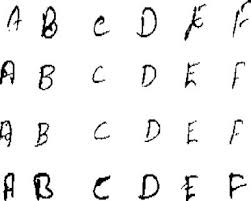 A B C D E F
A B C D E F
A B C D E F
A B C D E F